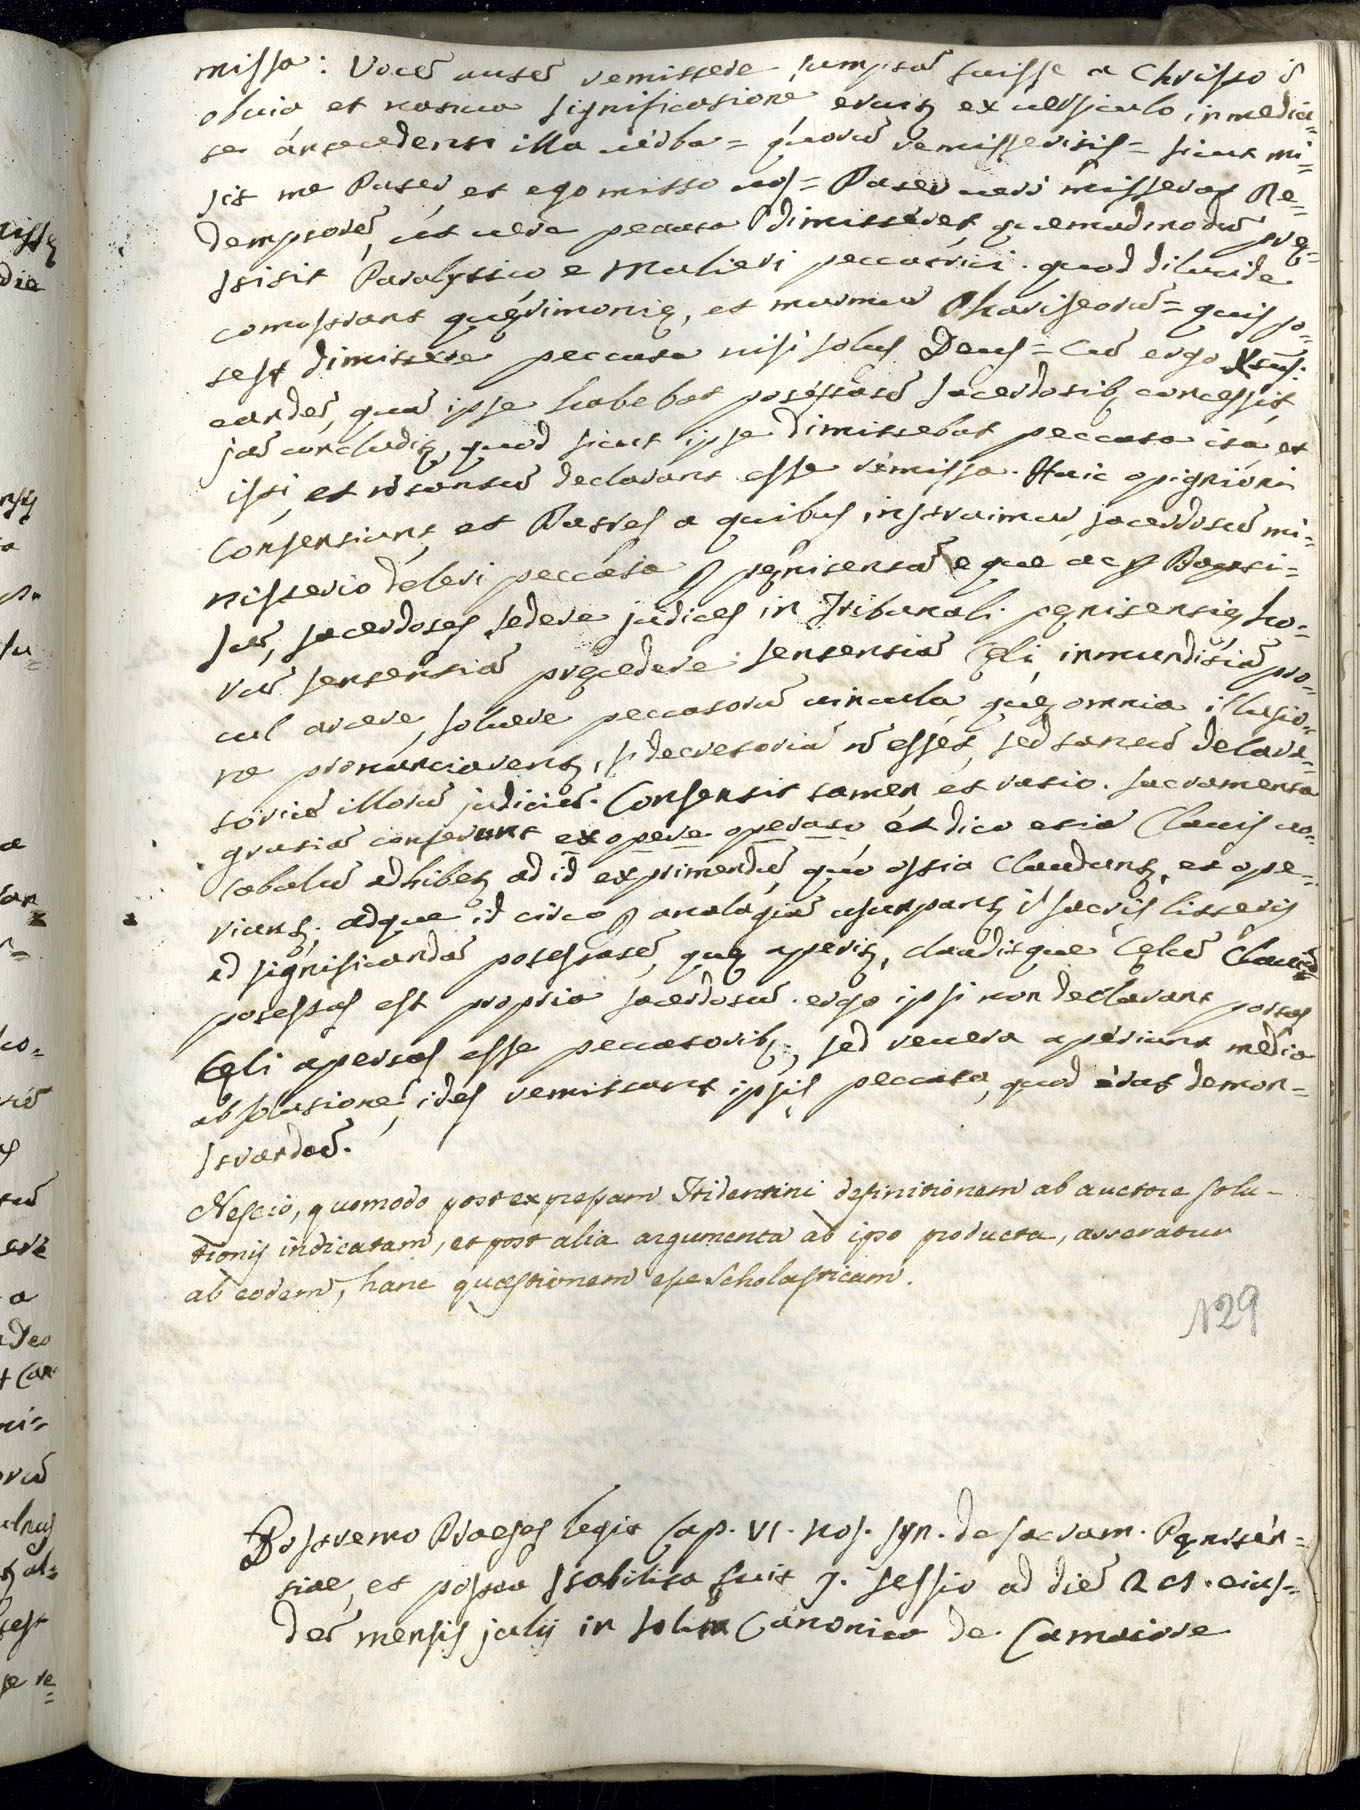 missa: Vocẽ autẽ remittere sumptã fuisse a Christo ĩ
obvia et nativa significatione eruitʒ ex uersiculo inmedia=
te antecedenti illa uerba= quorũ remisseritis= sicut mi=
sit me Pater, et ego mitto uos= Pater uerò misserat Re=
demptorẽ, ut uere peccata dimitteret quemadmodũ prę=
stitit Paralytico e Mulieri peccatrici. quod dilucide
comostrant querimonię, et murmur Phariseorũ= quis po=
test dimittere peccata nisi solus Deus= Cũ ergo Xtus:
eandẽ, quã ipse habebat potestatẽ sacerdotibʒ concessit
jã concluditʒ, quod sicut ipse dimittebat peccata ita et
isti, et nõ tantũ declarant esse remissa. Huic opignioni
Consentiunt et Patres a quibus instruimur sacerdotũ mi=
nisterio deleri peccata ꝑ pęnitentiã eque ac ꝑ Baptis=
mũ, sacerdotes sedere judices in Tribunali pęnitentię ho=
rũ sententiã precedere sententiã Cęli, inmunditiã pro=
cul arcere, soluere peccatorũ uincula, quę omnia illusio=
ne pronunciarentʒ, si decretoriũ nõ esset, sed tantũ delara=
toriũ illorũ judiciũ. Consentit tamen et ratio. sacramenta
gratiã conferunt ex opere operato et dico etiã Clauis uo=
cabulũ adhibetʒ ad id exprimendũ, quo ostia Claudunt, et ope=
riunt. adque id circo ꝑ analogiã usurpantʒ ĩ sacris litteris
ad significandã potestatẽ, quę aperit, clauditque Cęlũ Clauiũ
potestas est propria sacerdotũ. ergo ipsi non declarant portas
Cęli apertas esse peccatoribʒ, sed reuera aperiunt media
absolutione, idest remittunt ipsis peccata, quod erat demon=
strandũ.
Nescio, quomodo post expressam Tridentini definitionem ab auctore solu=
tionis indicatam, et post alia argumenta ab ipso producta, asseratur
ab eodem, hanc quæstionem esse Scholasticam.
129
Postremo Praeses legit Cap. VI. nos. syn. de sacram. Pęniten=
tiae, et postea stabilita fuit 7. sessio ad diẽ 21. eius=
dẽ mensis julij in Canonica de Camaiore